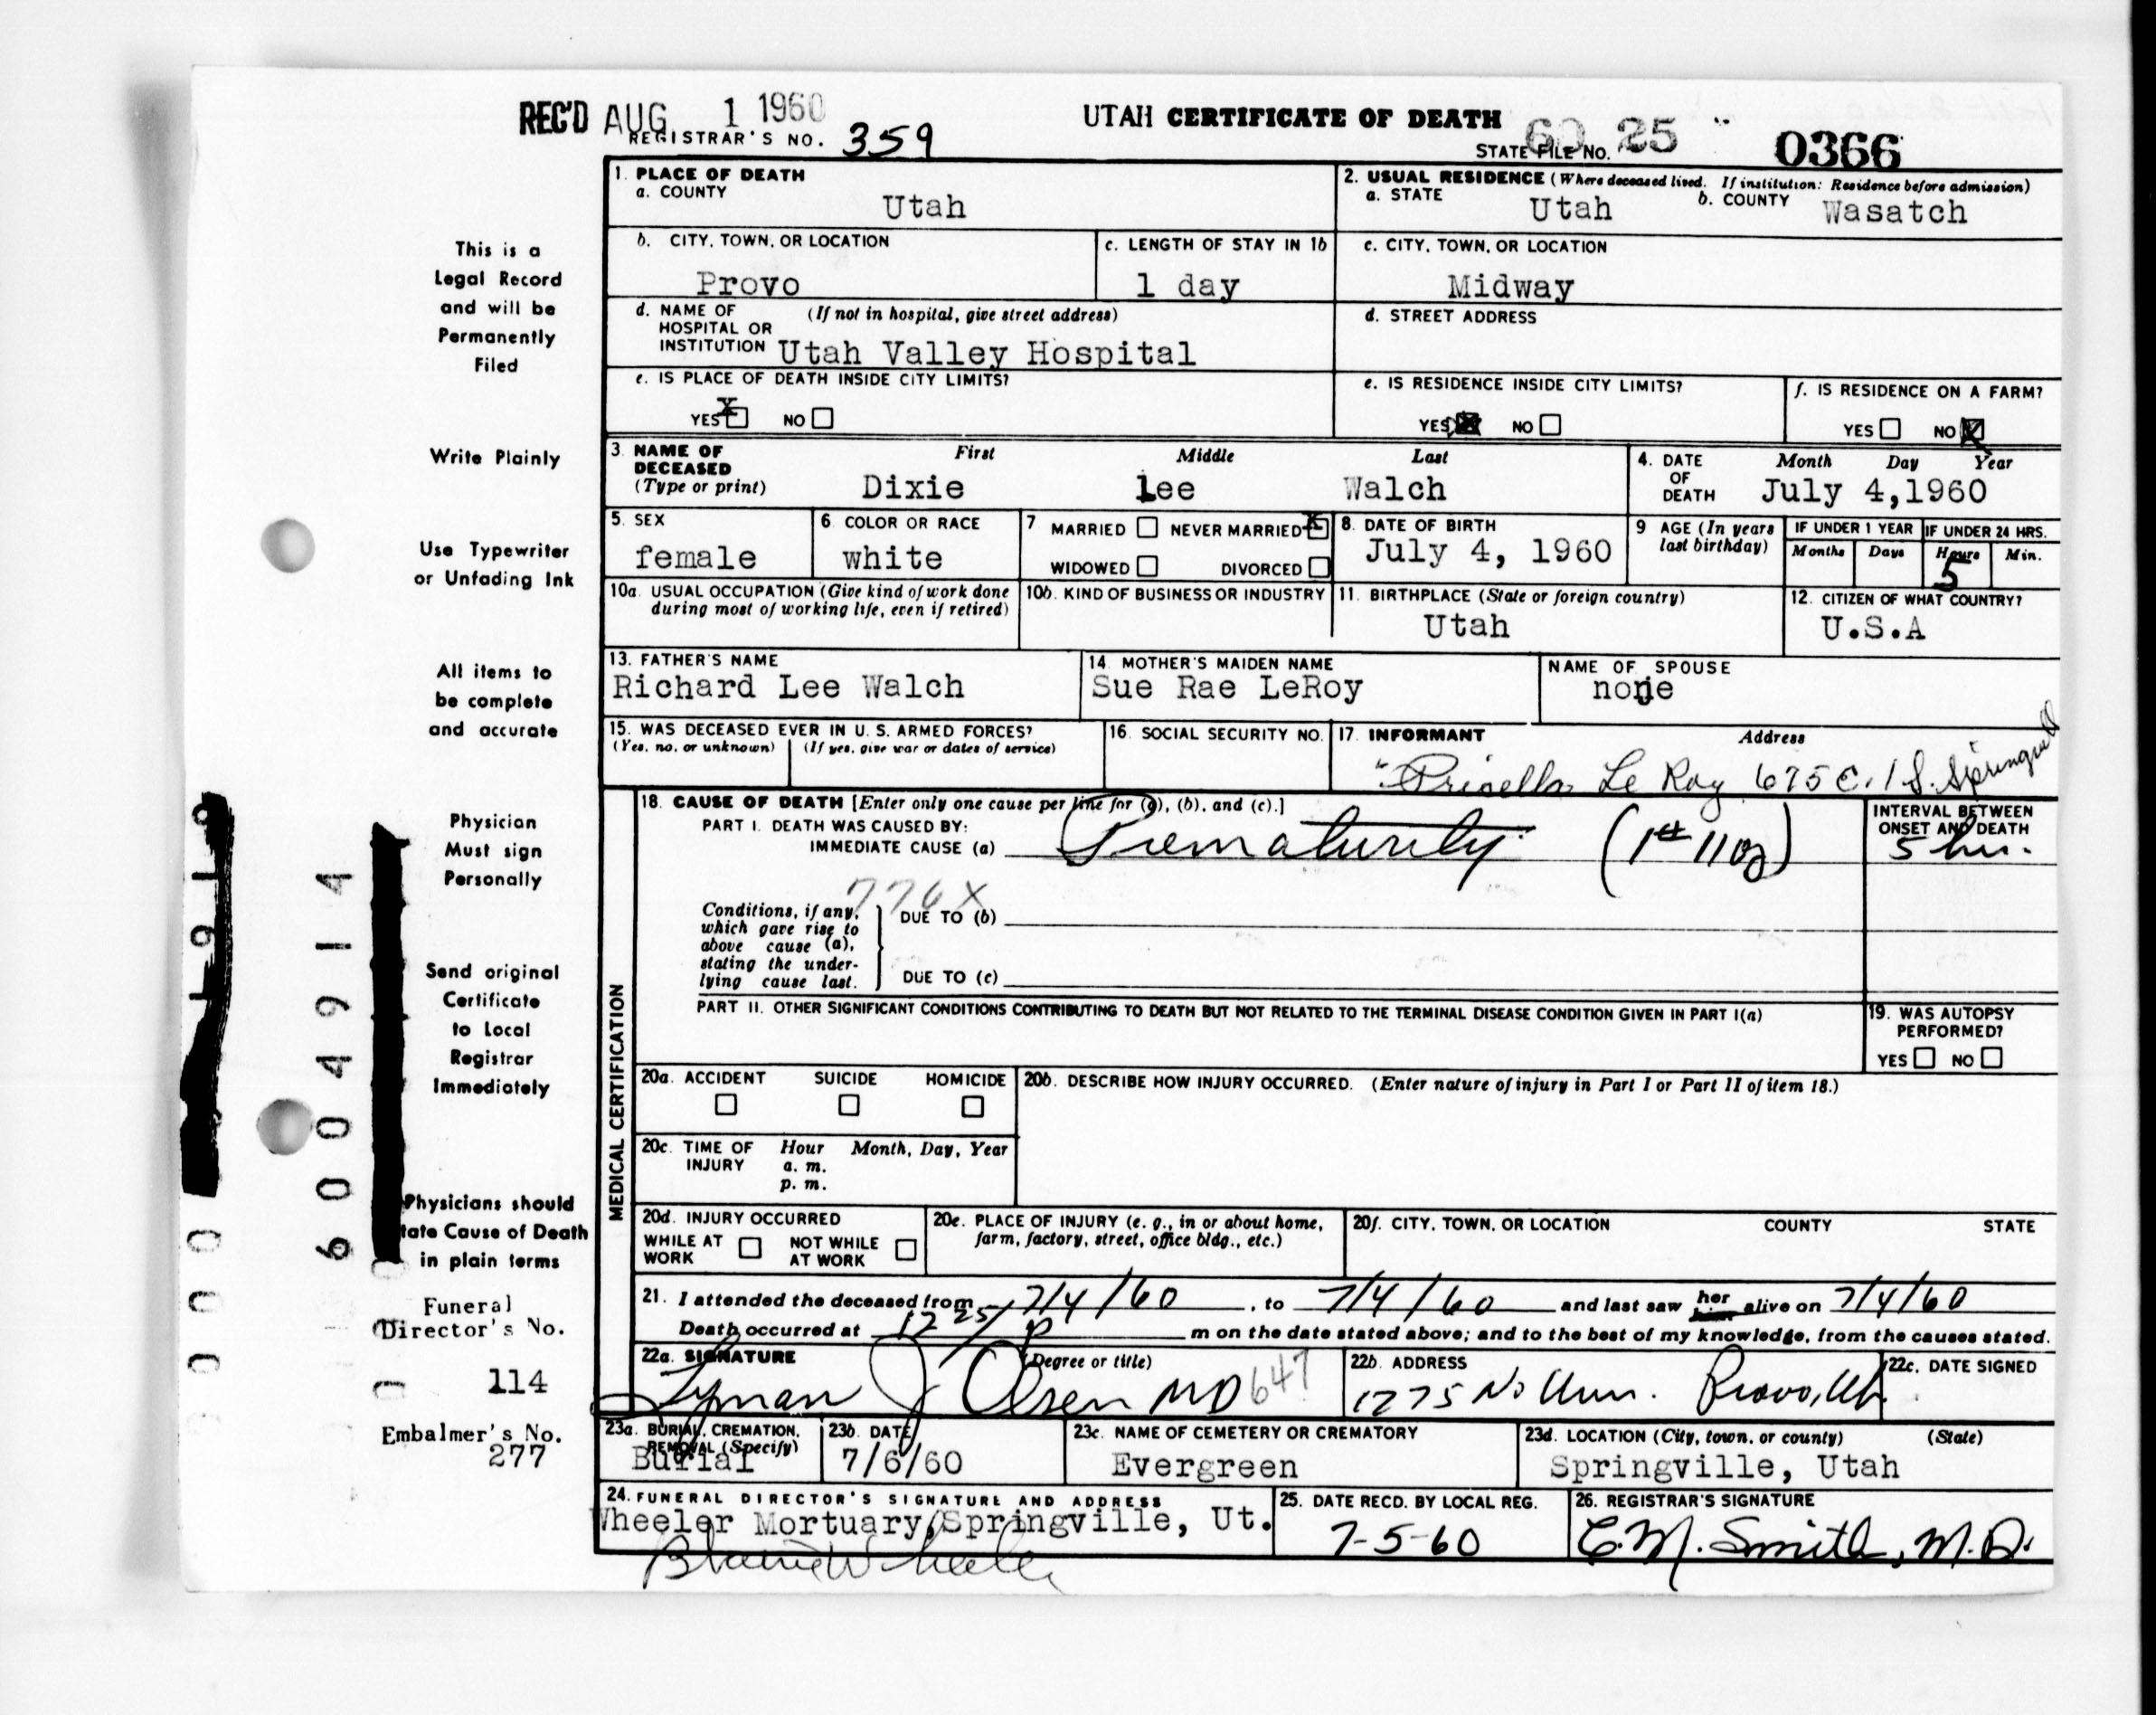 REC'D AUG 1 1960
UTAH CERTIFICATE OF DEATH
REGISTRAR'S NO. 359
STATE FILE NO. 60 25 0366
1. PLACE OF DEATH
a. COUNTY
Utah
2. USUAL RESIDENCE (Where deceased lived. If institution: Residence before admission)
a. STATE Utah b. COUNTY Wasatch
b. CITY, TOWN, OR LOCATION
Provo
c. LENGTH OF STAY IN 1b
1 day
c. CITY, TOWN, OR LOCATION
Midway
d. NAME OF HOSPITAL OR INSTITUTION (If not in hospital, give street address)
Utah Valley Hospital
d. STREET ADDRESS
e. IS PLACE OF DEATH INSIDE CITY LIMITS?
YES X NO
e. IS RESIDENCE INSIDE CITY LIMITS?
YES X NO
f. IS RESIDENCE ON A FARM?
YES NO X
3. NAME OF DECEASED (Type or print)
First Middle Last
Dixie Lee Walch
4. DATE OF DEATH Month Day Year
July 4,1960
5. SEX
female
6. COLOR OR RACE
white
7 MARRIED NEVER MARRIED X
WIDOWED DIVORCED
8. DATE OF BIRTH
July 4, 1960
9 AGE (In years last birthday)
IF UNDER 1 YEAR IF UNDER 24 HRS.
Months Days Hours Min.
5
10a. USUAL OCCUPATION (Give kind of work done during most of working life, even if retired)
10b. KIND OF BUSINESS OR INDUSTRY
11. BIRTHPLACE (State or foreign country)
Utah
12. CITIZEN OF WHAT COUNTRY?
U.S.A
13. FATHER'S NAME
Richard Lee Walch
14. MOTHER'S MAIDEN NAME
Sue Rae LeRoy
NAME OF SPOUSE
none
15. WAS DECEASED EVER IN U. S. ARMED FORCES?
(Yes, no, or unknown) (If yes, give war or dates of service)
16. SOCIAL SECURITY NO.
17. INFORMANT Address
Le Roy 675 E. 1 S.
MEDICAL CERTIFICATION
18. CAUSE OF DEATH [Enter only one cause per line for (a), (b), and (c).]
PART I. DEATH WAS CAUSED BY:
IMMEDIATE CAUSE (a) Prematurity (1# 11 oz)
INTERVAL BETWEEN ONSET AND DEATH
5 hrs.
776X
Conditions, if any, which gave rise to above cause (a), stating the underlying cause last.
DUE TO (b)
DUE TO (c)
PART II. OTHER SIGNIFICANT CONDITIONS CONTRIBUTING TO DEATH BUT NOT RELATED TO THE TERMINAL DISEASE CONDITION GIVEN IN PART I(a)
19. WAS AUTOPSY PERFORMED?
YES NO
20a. ACCIDENT SUICIDE HOMICIDE
20b. DESCRIBE HOW INJURY OCCURRED. (Enter nature of injury in Part I or Part II of item 18.)
20c. TIME OF INJURY Hour Month, Day, Year
a. m.
p. m.
20d. INJURY OCCURRED
WHILE AT WORK NOT WHILE AT WORK
20e. PLACE OF INJURY (e. g., in or about home, farm, factory, street, office bldg., etc.)
20f. CITY, TOWN, OR LOCATION COUNTY STATE
21. I attended the deceased from 7/4/60, to 7/4/60 and last saw her alive on 7/4/60
Death occurred at 12 25/ P m on the date stated above; and to the best of my knowledge, from the causes stated.
22a. SIGNATURE (Degree or title)
Lyman J Olsen MD 647
22b. ADDRESS
1275 No Univ. Provo, Ut.
22c. DATE SIGNED
23a. BURIAL, CREMATION, REMOVAL (Specify)
Burial
23b. DATE
7/6/60
23c. NAME OF CEMETERY OR CREMATORY
Evergreen
23d. LOCATION (City, town, or county) (State)
Springville, Utah
24. FUNERAL DIRECTOR'S SIGNATURE AND ADDRESS
Wheeler Mortuary, Springville, Ut.
25. DATE RECD. BY LOCAL REG.
7-5-60
26. REGISTRAR'S SIGNATURE
C.M. Smith, M.D.
This is a
Legal Record
and will be
Permanently
Filed
Write Plainly
Use Typewriter
or Unfading Ink
All items to
be complete
and accurate
Physician
Must sign
Personally
Send original
Certificate
to Local
Registrar
Immediately
Physicians should
tate Cause of Death
in plain terms
Funeral
Director's No.
114
Embalmer's No.
277
6004914